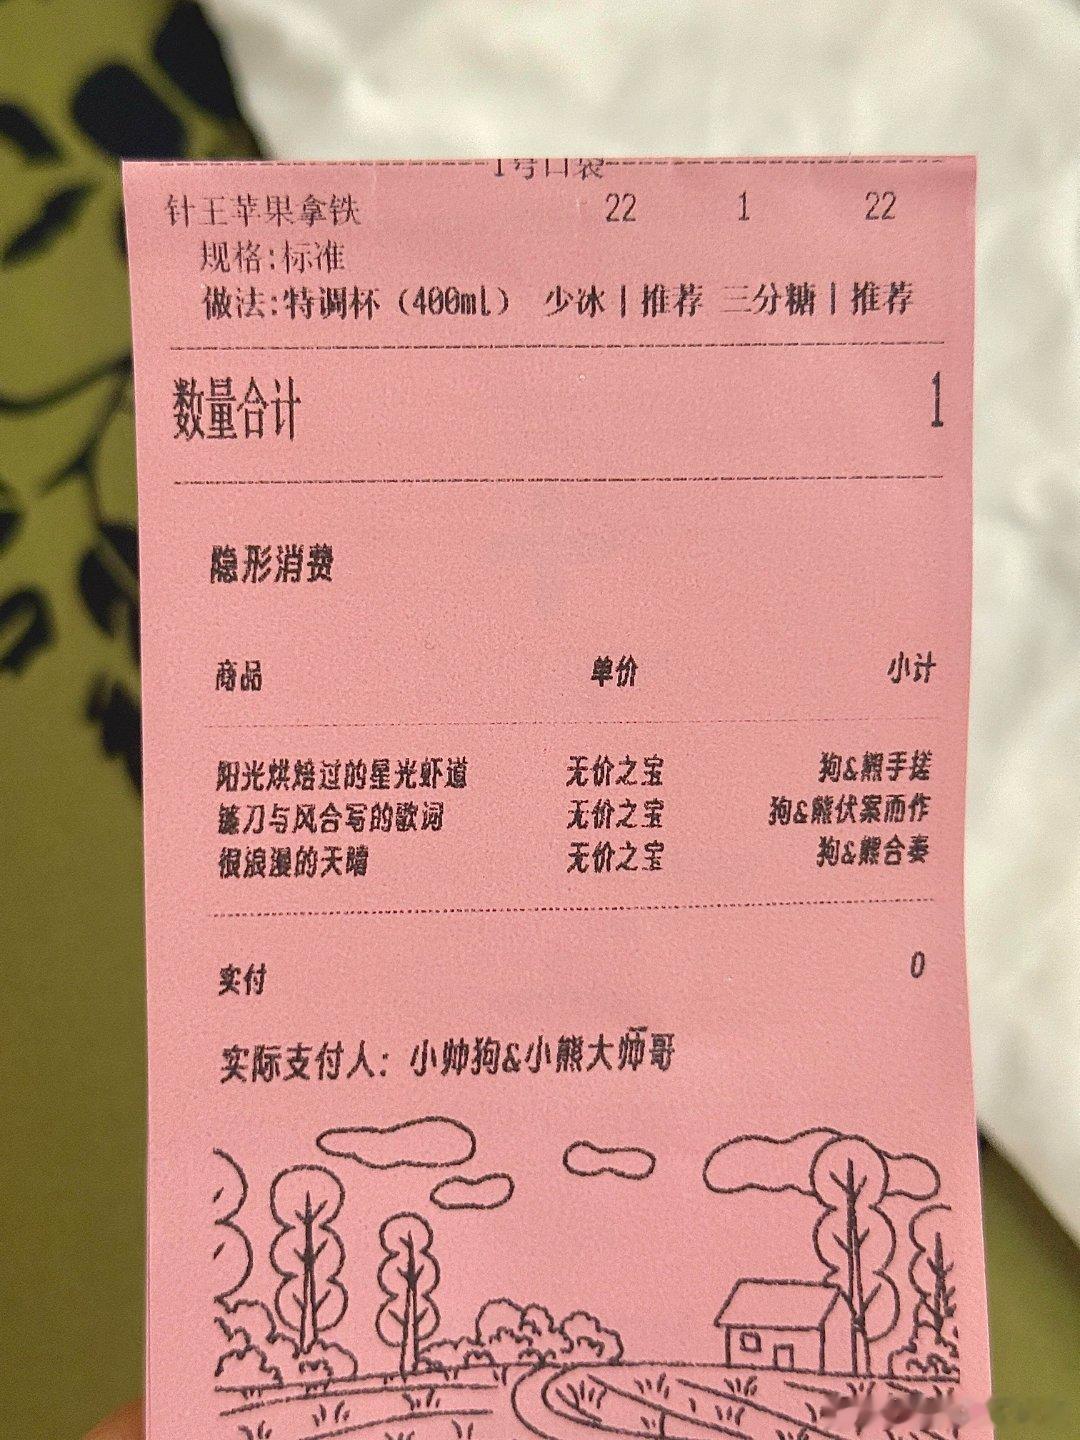 1号口袋
针王苹果拿铁 22 1 22
规格:标准
做法:特调杯（400ml） 少冰|推荐 三分糖|推荐
数量合计 1
隐形消费
商品 单价 小计
阳光烘焙过的星光虾道 无价之宝 狗&熊手搓
镰刀与风合写的歌词 无价之宝 狗&熊伏案而作
很浪漫的天晴 无价之宝 狗&熊合奏
实付 0
实际支付人：小帅狗&小熊大帅哥